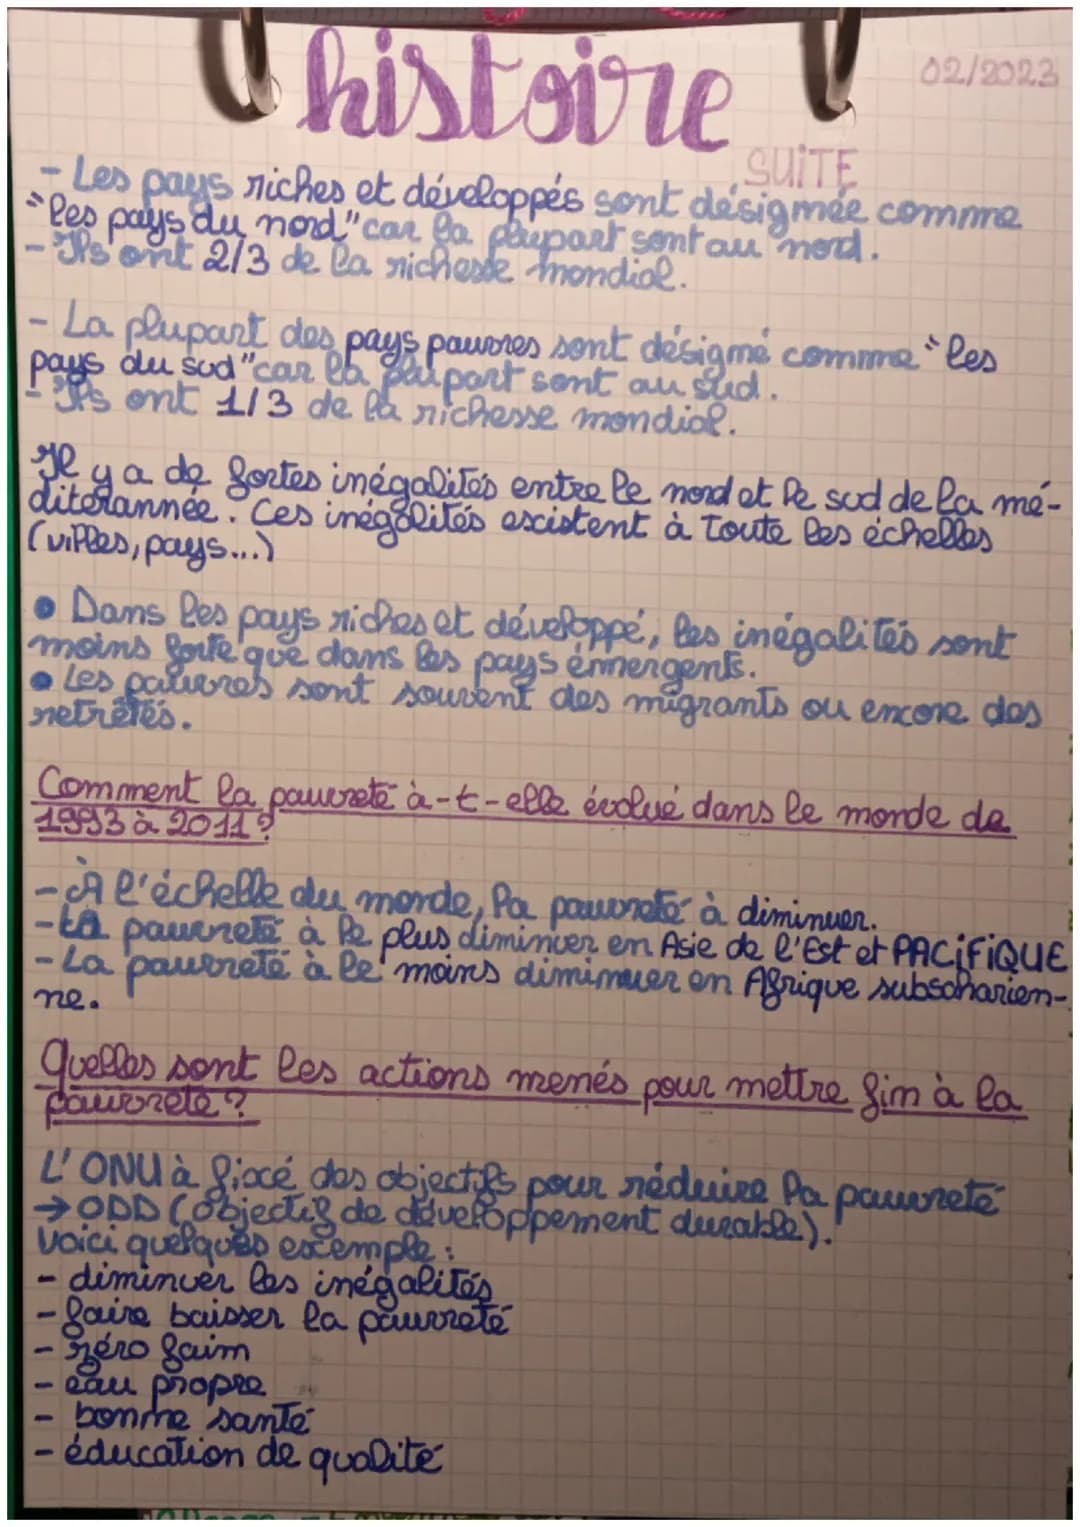 histoire
02/2023
SUITE
- Les pays riches et développés sont désignée comme
"les pays du nord" car la plupart sont au nord.
- Ils ont 2/3 de la richesse mondial.
- La plupart des pays pauvres sont désigné comme "les
pays du sud" car la plupart sont au sud.
- Ils ont 1/3 de la richesse mondial.
Il y a de fortes inégalités entre le nord et le sud de la mé-
diterannée. Ces inégalités existent à toute les échelles
(villes, pays...)
• Dans les pays riches et développé, les inégalités sont
moins forte que dans les pays émergents.
• Les pauvres sont souvent des migrants ou encore des
retrêtés.
Comment la pauvreté à-t-elle évolué dans le monde de
1993 à 2011 ?
- À l'échelle du monde, la pauvreté à diminuer.
- La pauvreté à le plus diminuer en Asie de l'Est et PACiFiQUE
- La pauvreté à le moins diminuer en Afrique subsaharien-
ne.
Quelles sont les actions menés pour mettre fin à la
pauvreté ?
L'ONU à fixé des objectifs pour réduire la pauvreté
→ ODD (objectif de développement durable).
Voici quelques exemple :
- diminuer les inégalités
- faire baisser la pauvreté
- zéro faim
- eau propre
- bonne santé
- éducation de qualité